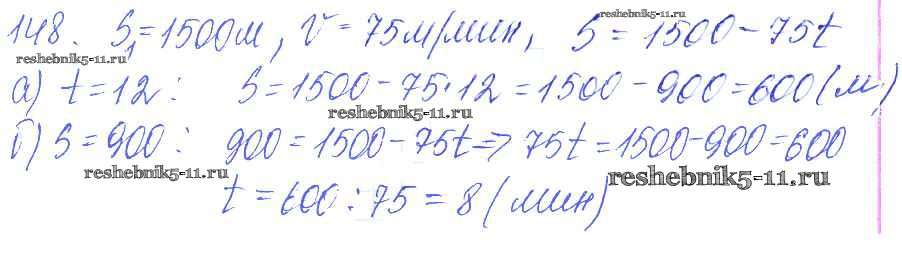 148. S₁=1500м, V=75м/мин, S=1500-75t
reshebnik5-11.ru
reshebnik5-11.ru
а) t=12: S=1500-75·12=1500-900=600(м)
reshebnik5-11.ru
б) S=900: 900=1500-75t=>75t=1500-900=600
reshebnik5-11.ru
reshebnik5-11.ru
t=600:75=8(мин)